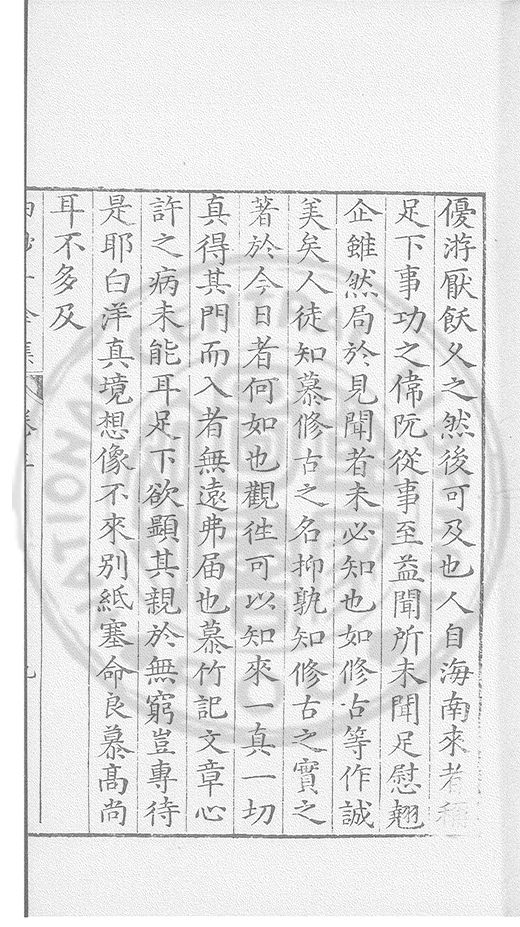 優游厭飫久之然後可及也人自海南來者稱
足下事功之偉阮從事至益聞所未聞足慰翹
企雖然局於見聞者未必知也如修古等作誠
美矣人徒知慕修古之名抑孰知修古之實之
著於今日者何如也觀徃可以知來一真一切
真得其門而入者無遠弗届也慕竹記文章心
許之病未能耳足下欲顯其親於無窮豈專待
是耶白洋真境想像不來別紙塞命良慕髙尚
耳不多及